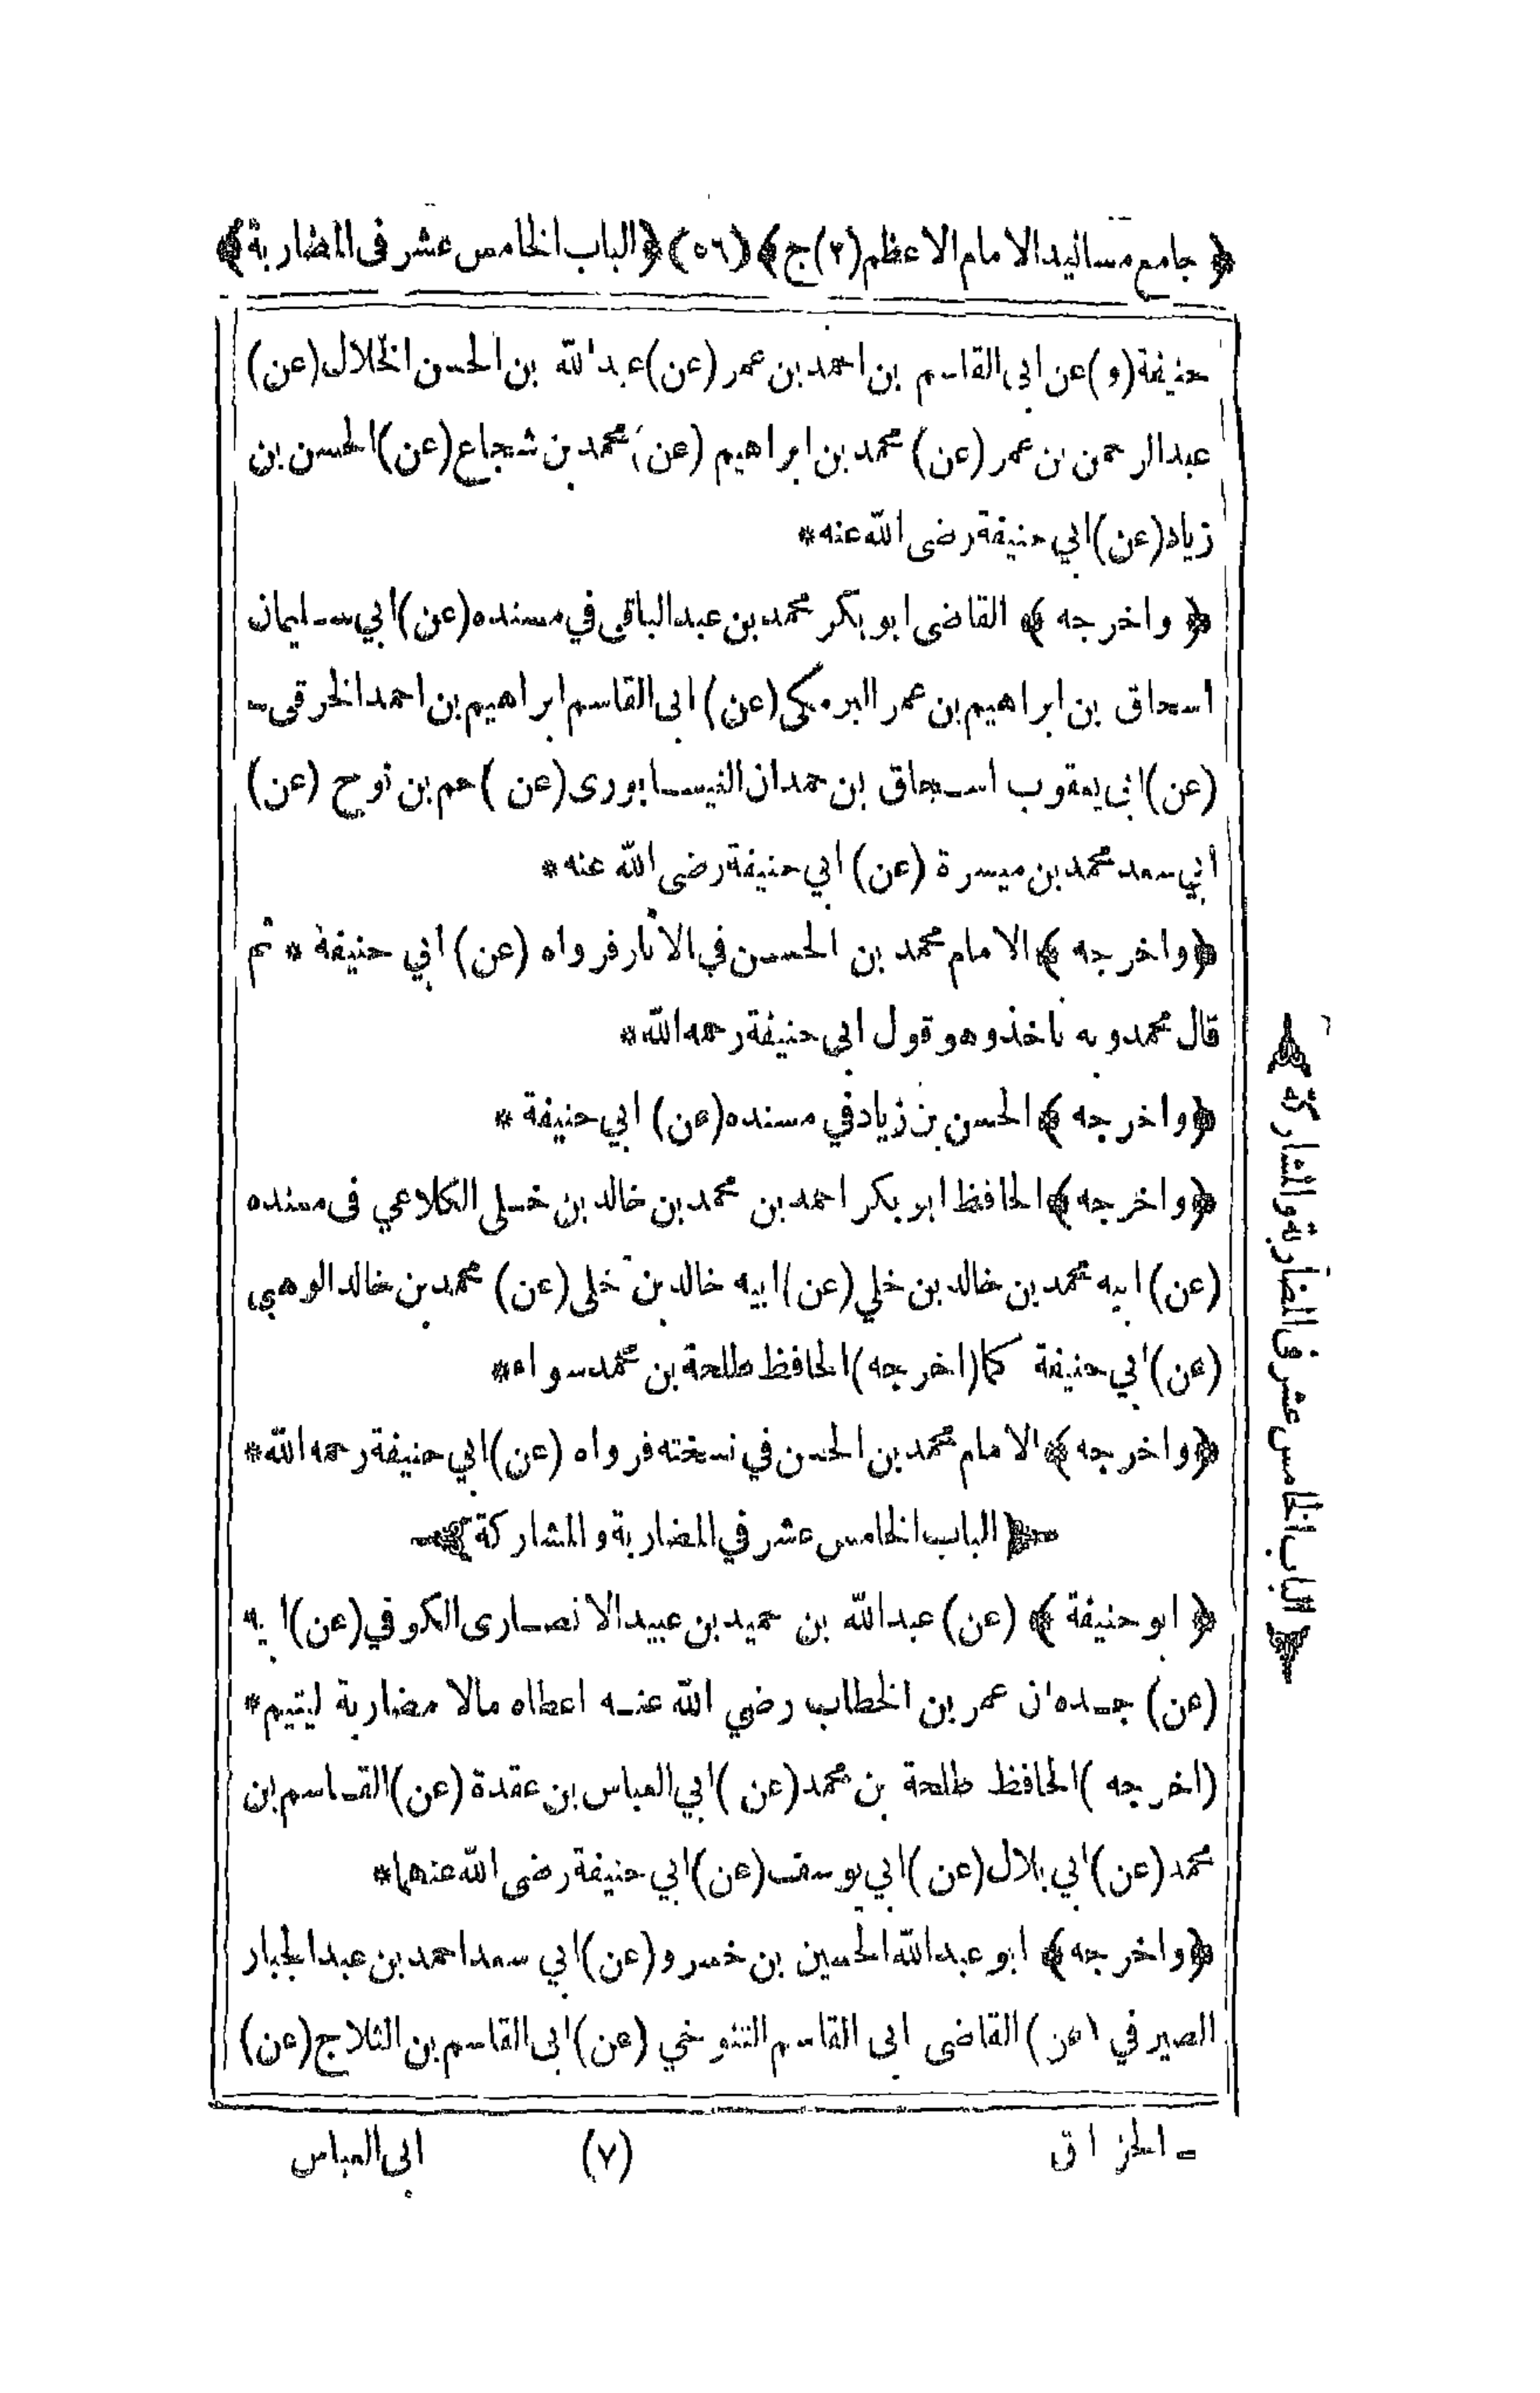 ﴿ جامع مسانيد الامام الاعظم (٢) ج ﴾ (٥٦) ﴿ الباب الخامس عشر فى المضاربة ﴾
حنيفة (و) عن ابى القاسم بن احمد بن عمر (عن) عبد الله بن الحسن الخلال (عن)
عبد الرحمن بن عمر (عن) محمد بن ابراهيم (عن) محمد بن شجاع (عن) الحسن بن
زياد (عن) ابي حنيفة رضى الله عنه *
﴿ واخرجه ﴾ القاضى ابو بكر محمد بن عبد الباقى في مسنده (عن) ابي سليمان
اسحاق بن ابراهيم بن عمر البرمكى (عن) ابى القاسم ابراهيم بن احمد الخرقى ـ
(عن) ابى يعقوب اسحاق بن حمدان النيسابورى (عن) حم بن نوح (عن)
أبي سعد محمد بن ميسرة (عن) ابي حنيفة رضى الله عنه *
﴿ واخرجه ﴾ الامام محمد بن الحسن في الآثار فرواه (عن) ابي حنيفة * ثم
قال محمد وبه ناخذ وهو قول ابى حنيفة رحمه الله *
﴿ واخرجه ﴾ الحسن بن زياد في مسنده (عن) ابي حنيفة *
﴿ واخرجه ﴾ الحافظ ابو بكر احمد بن محمد بن خالد بن خلى الكلاعي فى مسنده
(عن) ابيه محمد بن خالد بن خلي (عن) ابيه خالد بن خلى (عن) محمد بن خالد الوهبي
(عن) ابي حنيفة كما (اخرجه) الحافظ طلحة بن محمد سواء *
﴿ واخرجه ﴾ الامام محمد بن الحسن في نسخته فرواه (عن) ابي حنيفة رحمه الله *
﴿ الباب الخامس عشر في المضاربة و المشاركة ﴾
﴿ ابو حنيفة ﴾ (عن) عبد الله بن حميد بن عبيد الانصارى الكوفي (عن) ابيه
(عن) جده ان عمر بن الخطاب رضي الله عنه اعطاه مالا مضاربة ليتيم *
(اخرجه) الحافظ طلحة بن محمد (عن) ابي العباس بن عقدة (عن) القاسم بن
محمد (عن) ابي بلال (عن) ابي يوسف (عن) ابي حنيفة رضى الله عنهما *
﴿ واخرجه ﴾ ابو عبد الله الحسين بن خسرو (عن) ابي سعد احمد بن عبد الجبار
الصيرفي (عن) القاضى ابى القاسم التنوخي (عن) ابى القاسم بن الثلاج (عن)
ـ الخزاق
(٧)
ابى العباس
﴿ الباب الخامس عشر فى المضاربة والمشاركة ﴾